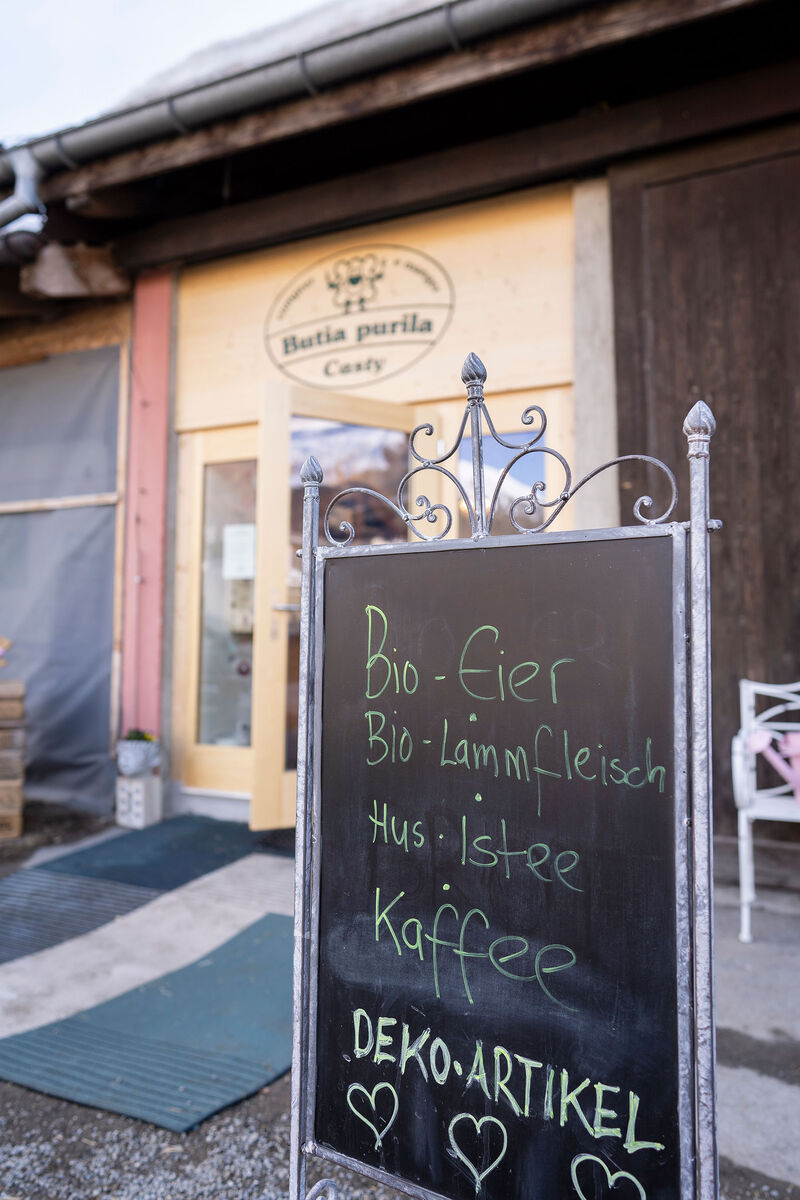 Butia purila
Casty
Bio-Eier
Bio-Lammfleisch
Hus·Istee
Kaffee
DEKO·ARTIKEL